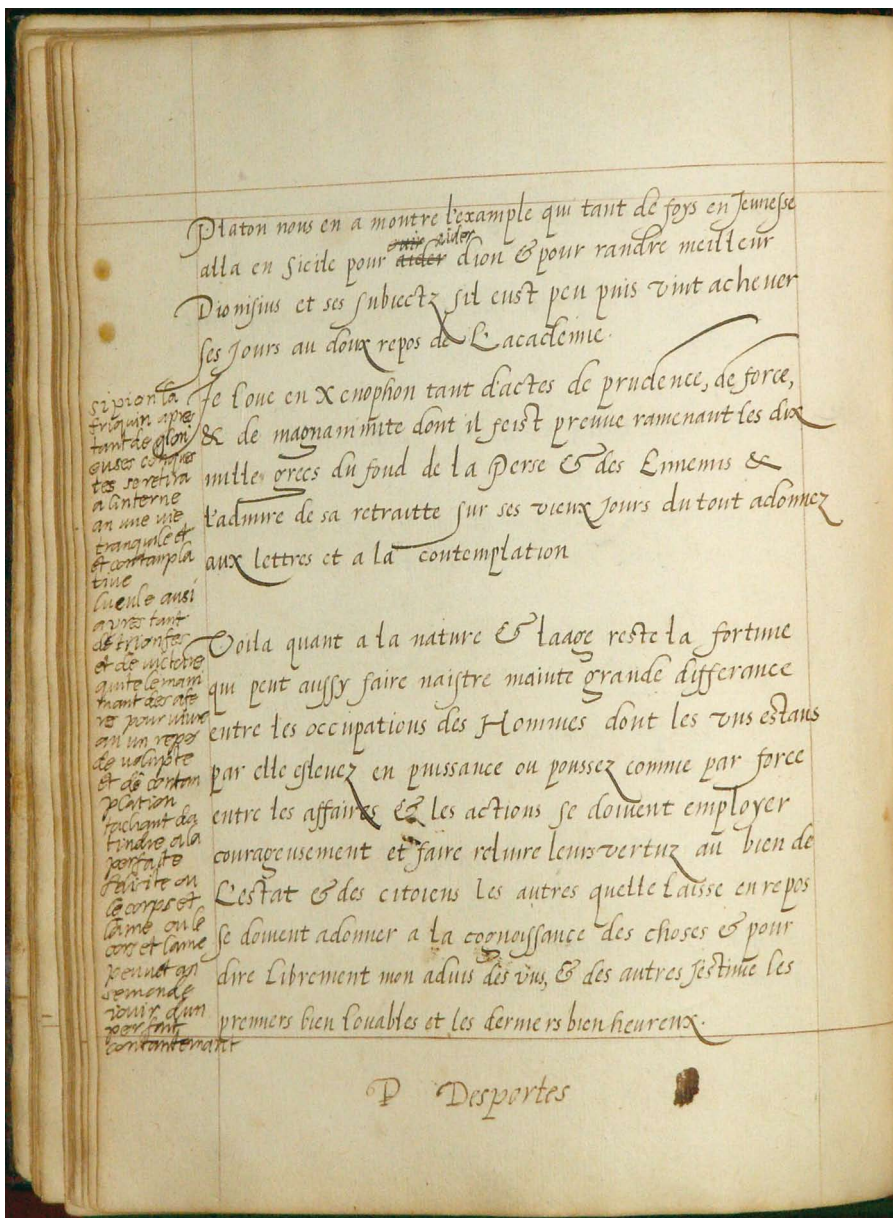 Platon nous en a montre l'example qui tant de foys en Jeunesse
aider
alla en Sicile pour aider dion & pour randre meilleur
Dionisius et ses subiectz sil eust peu puis vint acheuer
ses Jours au doux repos de L'academie.
Je loue en Xenophon tant d'actes de prudence, de force,
& de magnanimite dont il feist preuue ramenant les dix
mille grecs du fond de la Perse & des Ennemis &
l'admire de sa retraitte sur ses vieux Jours du tout adonnez
aux lettres et a la contemplation
Voila quant a la nature & laage reste la fortune
qui peut aussy faire naistre mainte grande differance
entre les occupations des Hommes dont les vns estans
par elle esleuez en puissance ou poussez comme par force
entre les affaires & les actions se doiuent employer
courageusement et faire reluire leurs vertuz au bien de
L'estat & des citoiens les autres quelle laisse en repos
se doiuent adonner a la cognoissance des choses & pour
dire Librement mon aduis des vns, & des autres J'estime les
premiers bien louables et les derniers bien heureux.
P Desportes
sipion la
friquin apre
tant de glori
euses conques
tes se retira
a linterne
an une vie
tranquile et
et contanpla
tiue
luculle ausi
apres tant
de trionfes
et de victoire
quite le mani
mant des afe
res pour viure
an un repos
de volupte
et de contan
plation
tachant da
tindre a la
perfaite
felicite ou
le corps et
lame ou le
cors et lame
peuuet an
se monde
iouir dun
perfait
contantemant